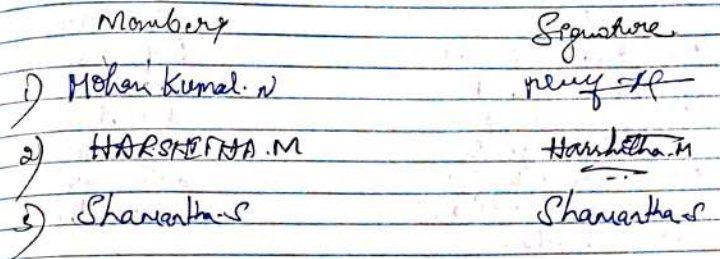 Members Signature
1) Mohan Kumal. N
2) HARSHITHA.M Harshitha.M
3) Shamantha.S Shamantha.S